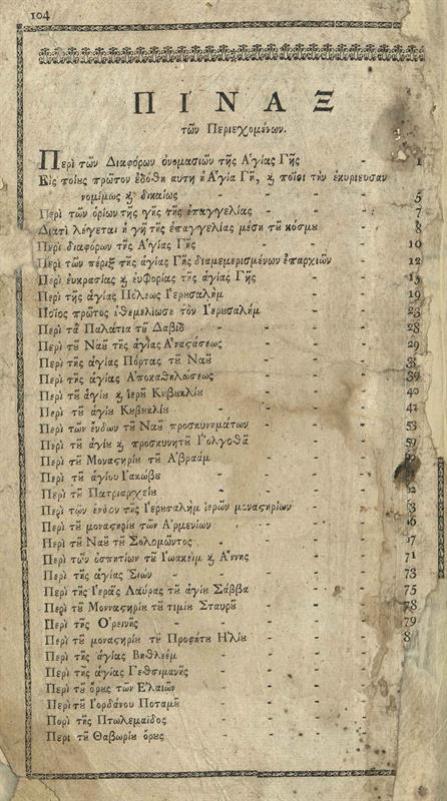 104
ΠΙΝΑΞ
τῶν Περιεχομένων.
Περὶ τῶν Διαφόρων ὀνομασιῶν τῆς Ἁγίας Γῆς - 1
Εἰς ποίους πρῶτον ἐδόθη αυτη ἡ Ἁγία Γῆ, ϗ ποῖοι τὴν ἐκυρίευσαν
νομίμως ϗ δικαίως - - - - 5
Περὶ τῶν ὁρίων τῆς γῆς τῆς ἐπαγγελίας - - - 7
Διατὶ λέγεται ἡ γῆ τῆς ἐπαγγελίας μέση τȣ͂ κόσμȣ - 8
Περὶ διαφόρων τῆς Ἁγίας Γῆς - - - 10
Περὶ τῶν πέριξ τῆς ἁγίας Γῆς διαμεμερισμένων ἐπαρχιῶν - 12
Περὶ ἐυκρασίας ϗ ἐυφορίας τῆς ἁγίας Γῆς - - 13
Περὶ τῆς ἁγίας Πόλεως Ἱερȣσαλήμ - - - 19
Ποῖος πρῶτος ἐθεμελίωσε τὸν Ἱερȣσαλήμ - - 23
Περὶ τὰ Παλάτια τȣ͂ Δαβὶδ - - - 28
Περὶ τȣ͂ Ναȣ͂ τῆς ἁγίας Ἀναϛάσεως - - - 29
Περὶ τῆς ἁγίας Πόρτας τȣ͂ Ναȣ͂ - - - 35
Περὶ τῆς ἁγίας Ἀποκαθηλώσεως - - - 39
Περὶ τȣ͂ ἁγίȣ ϗ ἱερȣ͂ Κȣβȣκλίȣ - - - 40
Περὶ τȣ͂ ἁγίȣ Κȣβȣκλίȣ - - - 41
Περὶ τῶν ἔνδων τȣ͂ Ναȣ͂ προσκυνημάτων - - - 53
Περὶ τȣ͂ ἁγίȣ ϗ προσκυνητȣ͂ Γολγοθᾶ - - - 57
Περὶ τȣ͂ Μοναϛηρίȣ τȣ͂ Ἀβραάμ - - -
Περὶ τȣ͂ ἁγίου Ἰακώβȣ - - -
Περὶ τȣ͂ Πατριαρχείȣ - - -
Περὶ τῶν ἔνδον τῆς Ἱερȣσαλὴμ ἱερῶν μοναϛηρίων - -
Περὶ τȣ͂ μοναϛηρίȣ τῶν Ἀρμενίων - - -
Περὶ τȣ͂ Ναȣ͂ τȣ͂ Σολομῶντος - - -
Περὶ τῶν ὁσπητίων τȣ͂ Ἰωακεὶμ ϗ Ἄννης - - - 71
Περὶ τῆς ἁγίας Σιών - - - 73
Περὶ τῆς Ἱερᾶς Λαύρας τȣ͂ ἁγίȣ Σάββα - - - 75
Περὶ τȣ͂ Μονναϛηρίȣ τȣ͂ τιμίȣ Σταυρȣ͂ - - - 78
Περὶ τῆς Ὀρεινῆς - - - 79
Περὶ τȣ͂ μοναϛηρίȣ τȣ͂ Προφέτȣ Ἠλίȣ - - - 8
Περὶ τῆς ἁγίας Βηθλεέμ - - -
Περὶ τῆς ἁγίας Γεθσιμανῆς - - -
Περὶ τȣ͂ ὄρȣς τῶν Ἐλαιῶν - - -
Περὶ τȣ͂ Ἰορδάνου Ποταμȣ͂ - - -
Περὶ τῆς Πτωλεμαίδος - - -
Περι τȣ͂ Θαβωρίȣ ὄρȣς - - -